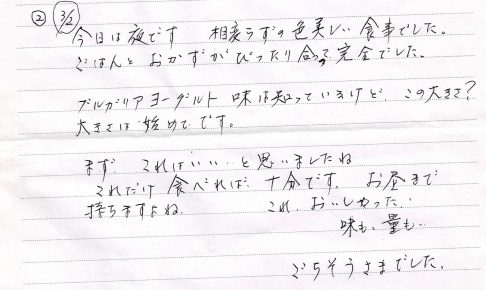 ② 3/2
今日は夜です 相変らずの色美しい食事でした。
ごはんとおかずがぴったり合って完全でした。
ブルガリアヨーグルト 味は知っているけど、この大きさ?
大きさは始めてです。
まず、これはいい、と思いましたね
これだけ食べれば、十分です。お昼まで
持ちますよね、 これ、おいしかった、
味も、量も、
ごちそうさまでした。